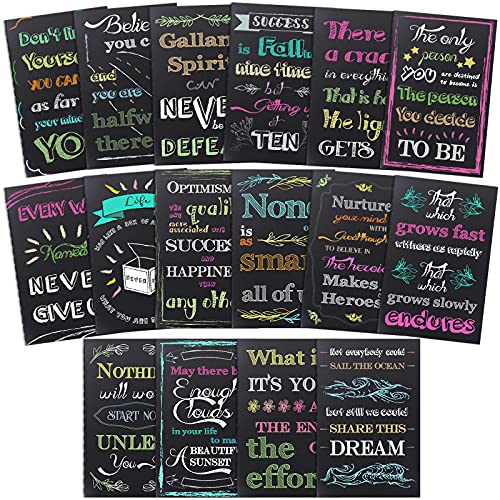 Don't li
Yourse
YOU CAN
as far
your mind
YO
Belie
you c
and
you are
halfw
there
Gallan
Spirit
CAN
NEVE
BE
DEFEA
SUCCESS
is Fallin
nine time
but
Getting u
TEN
There
a crac
in everythin
That is ho
the lig
GETS
The only
person
YOU are destined
to become is
The person
You decide
TO BE
EVERY W
Named
NEVE
GIVE
Life
WAS LIKE A BOX OF
NEVER
WHAT YOU ARE
OPTIMISM
quali
more
associated with
SUCCES
AND
HAPPINE
THAN
any othe
None
is
as
smar
as
all of u
Nurture
your mind
WITH
Good thoughts
TO BELIEVE IN
The heroic
Makes
Heroes
That
which
grows fast
withers as rapidly
That
which
grows slowly
endures
NOTHIN
will wo
START NO
UNLE
You
May there b
Enough
Clouds
in your life
to ma
A
BEAUTIFU
SUNSET
What i
IT'S YO
AT
THE EN
the
effor
Not everybody could
SAIL THE OCEAN
but still we could
SHARE THIS
DREAM